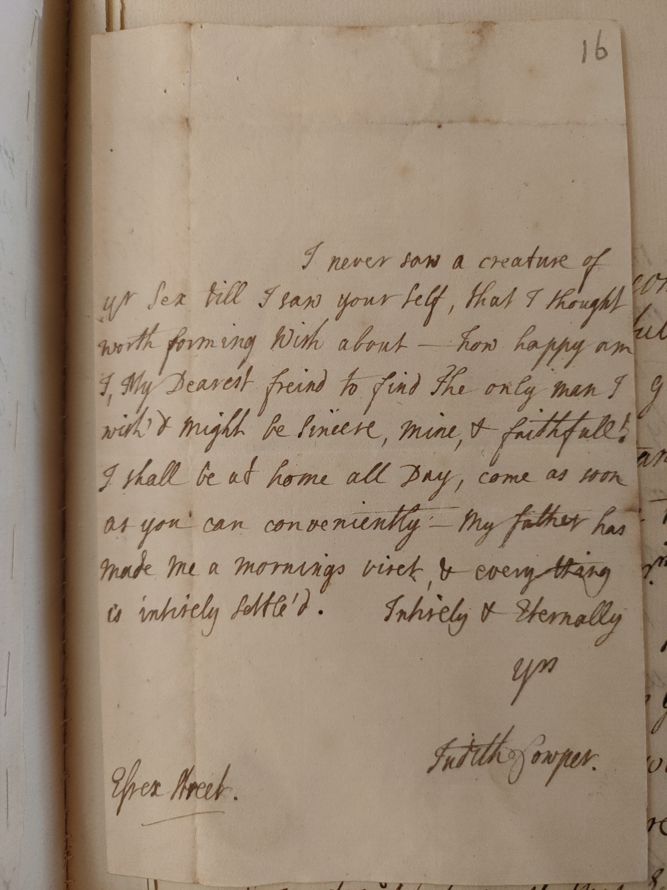 16
I never saw a creature of
yr Sex till I saw your self, that I thought
worth forming Wish about — how happy am
I, My Dearest freind to find The only man I
wish'd might be Sincere, mine, & faithfull!
I shall be at home all Day, come as soon
as you can conveniently — My father has
made me a mornings viset, & every thing
is intirely Settle'd. Intirely & Eternally
Yrs
Judith Cowper.
Essex Street.